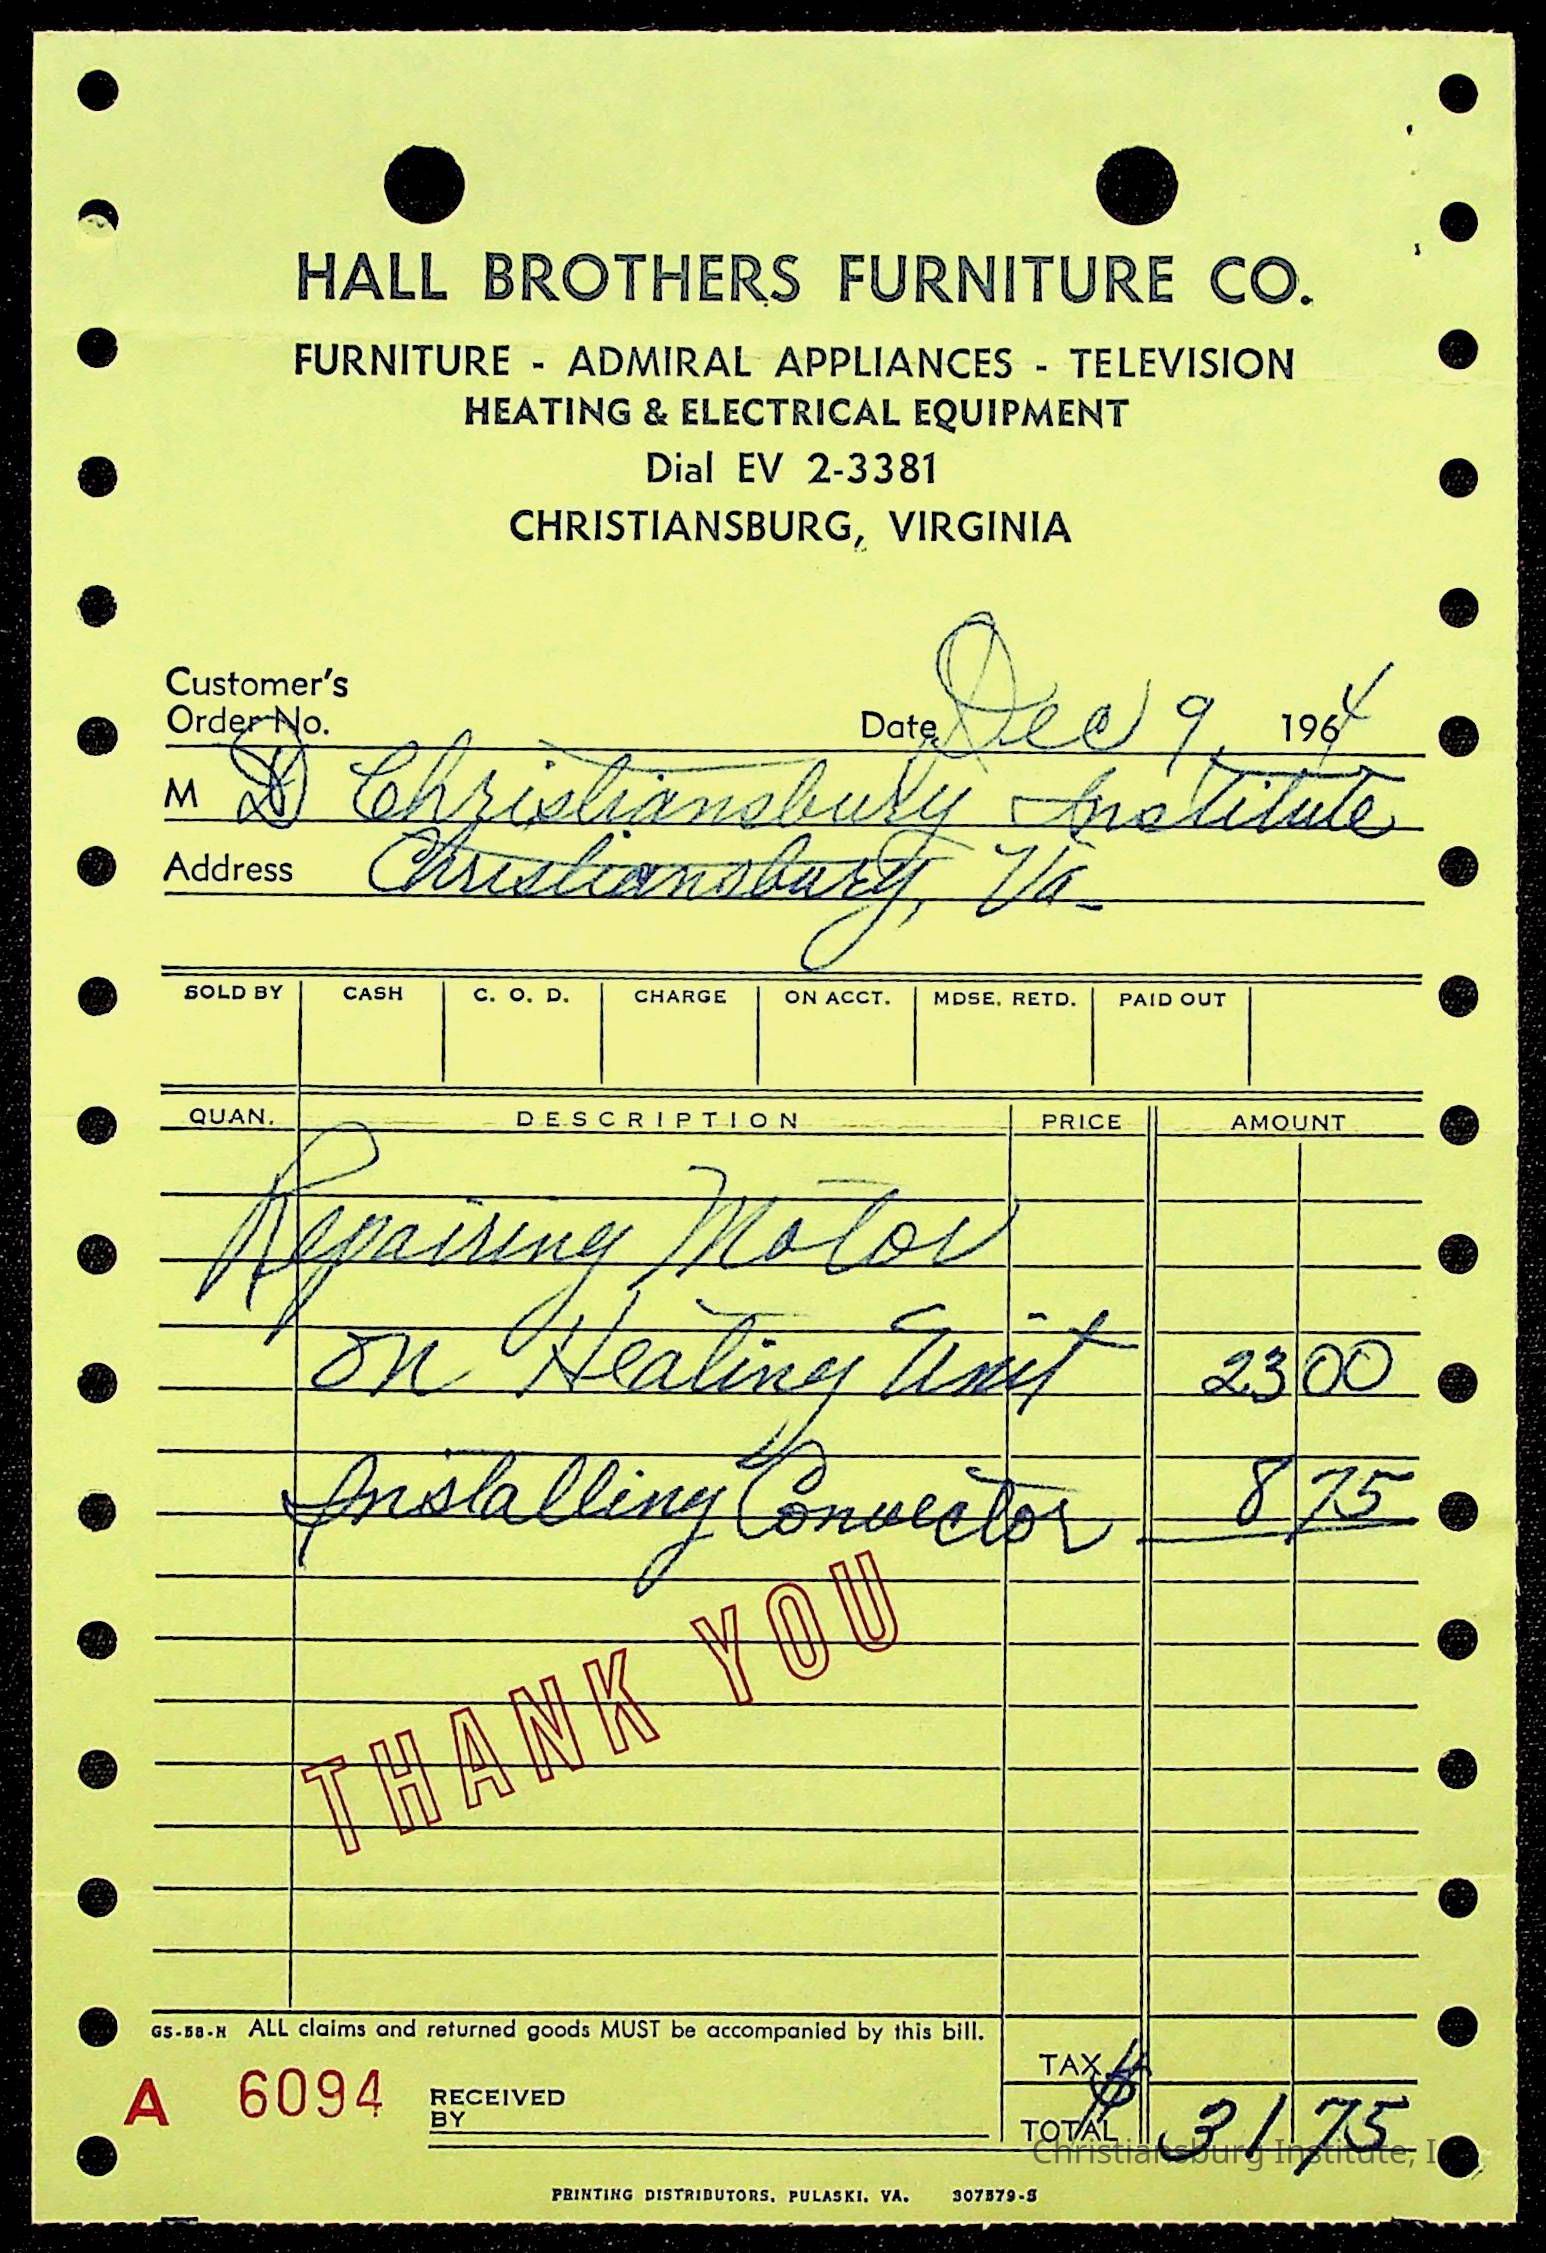 HALL BROTHERS FURNITURE CO.
FURNITURE - ADMIRAL APPLIANCES - TELEVISION
HEATING & ELECTRICAL EQUIPMENT
Dial EV 2-3381
CHRISTIANSBURG, VIRGINIA
Customer's
Order No.
Date Dec 9, 1964
M Christiansburg Institute
Address Christiansburg, Va
SOLD BY CASH C. O. D. CHARGE ON ACCT. MDSE. RETD. PAID OUT
QUAN. DESCRIPTION PRICE AMOUNT
Repairing Motor
on Heating Unit 23 00
Installing Convector 8 75
THANK YOU
GS-58-N ALL claims and returned goods MUST be accompanied by this bill.
TAX
A 6094 RECEIVED
BY
TOTAL $ 31 75
Christiansburg Institute, I
PRINTING DISTRIBUTORS, PULASKI, VA. 307579-S